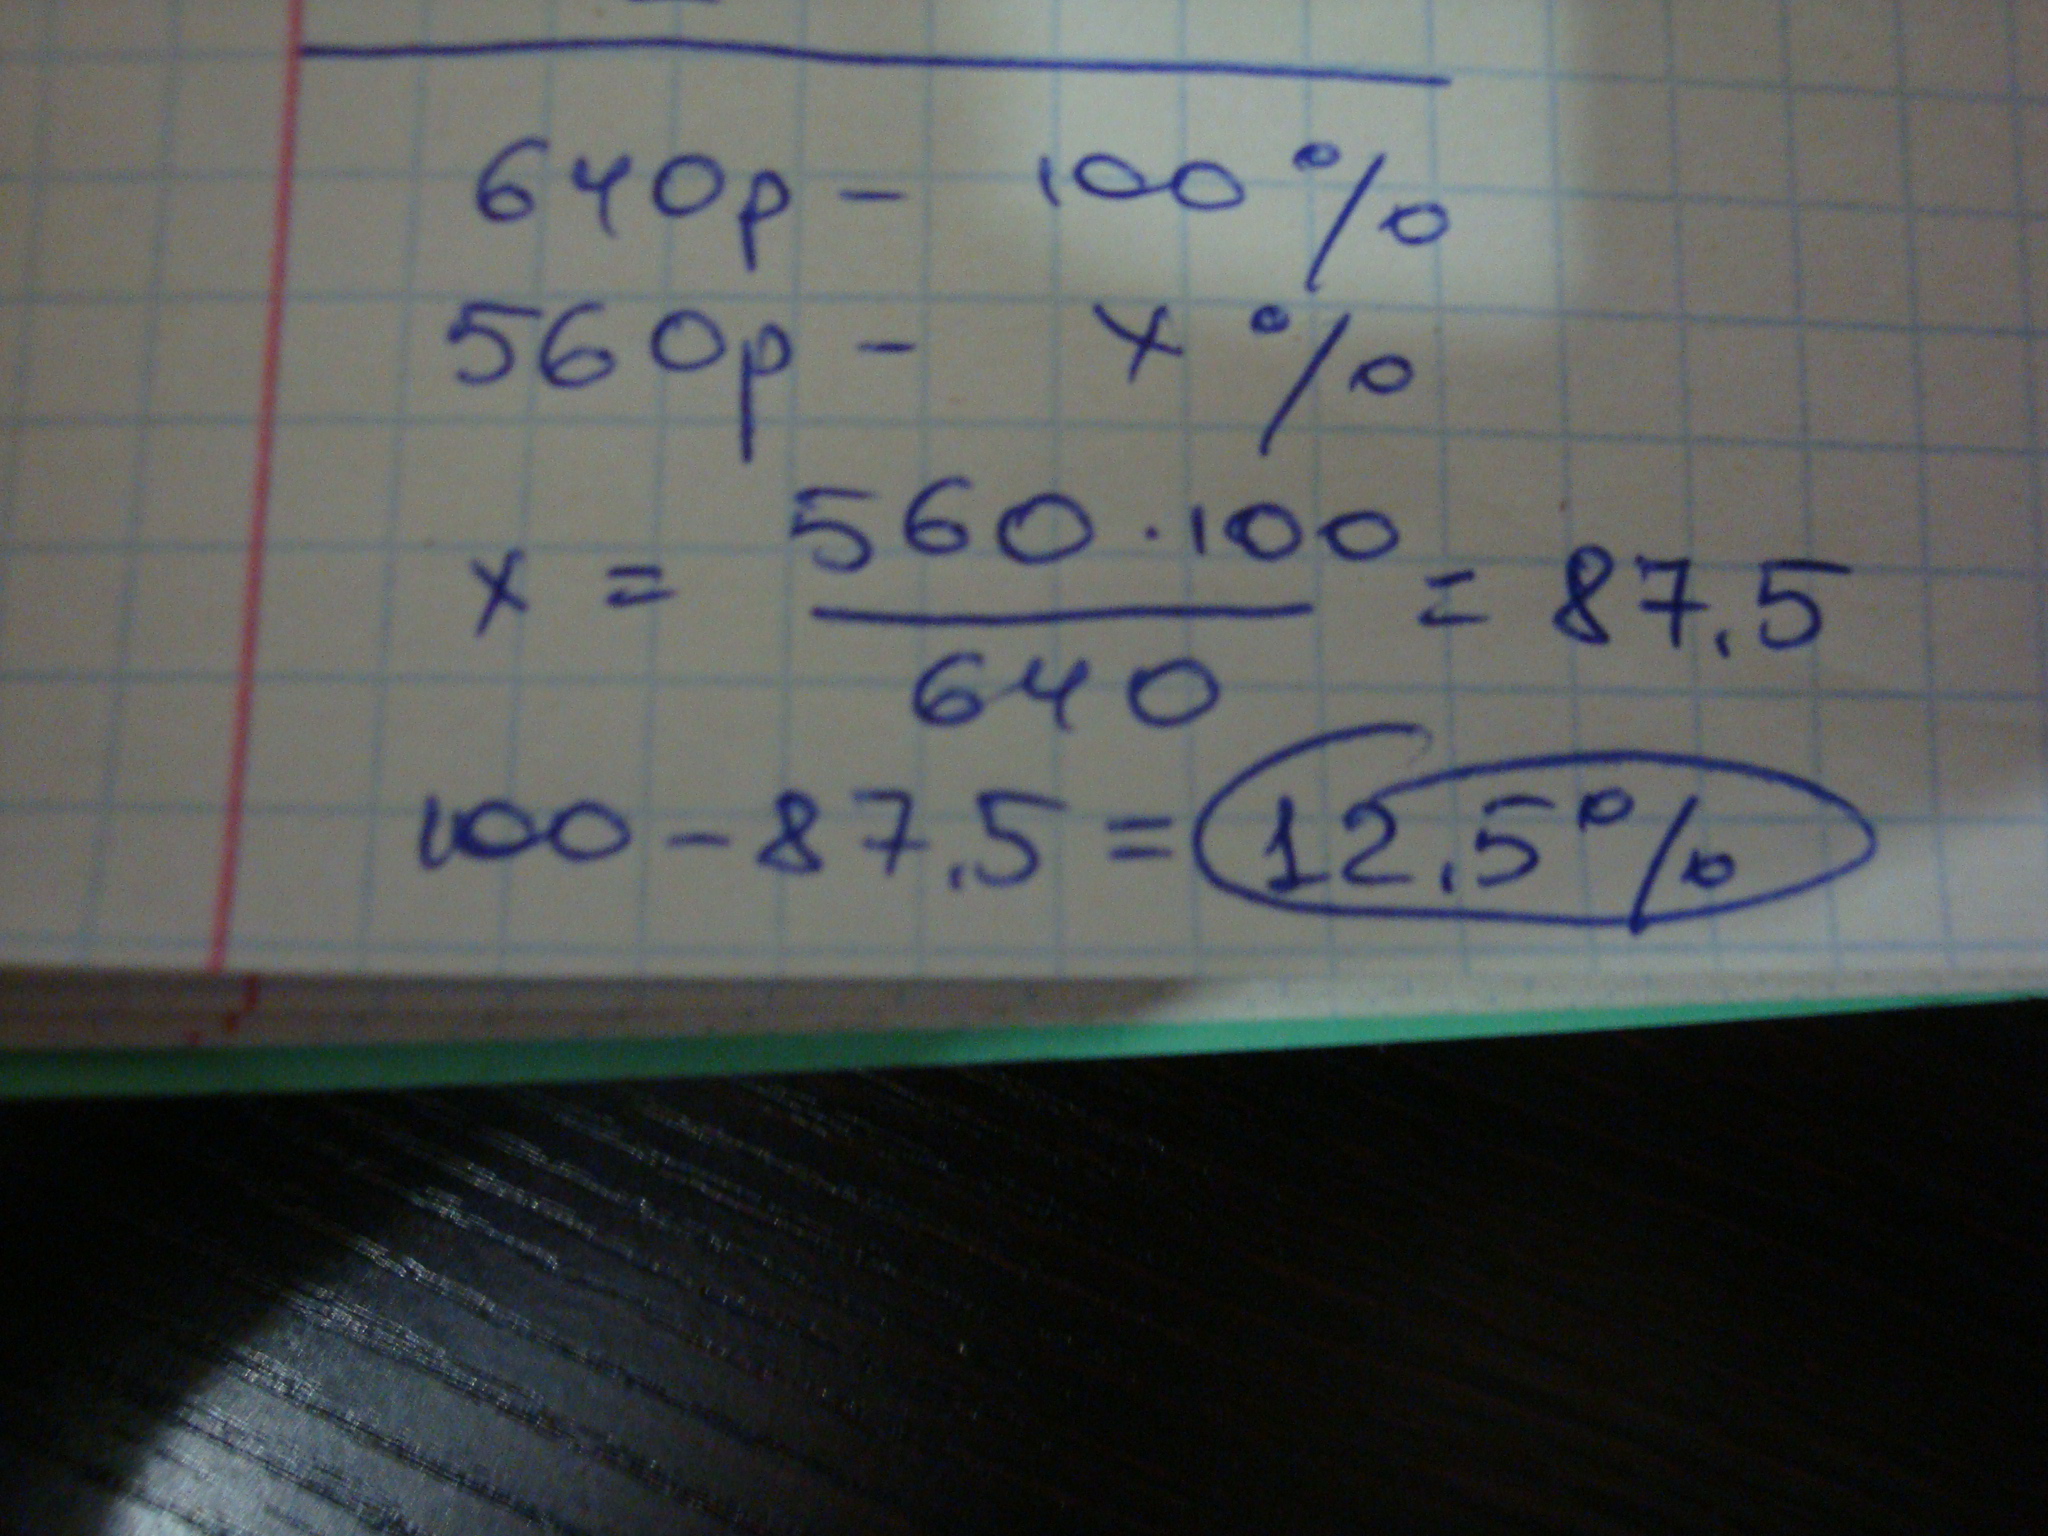 640р - 100%
560р - x%
x = 560·100 / 640 = 87.5
100 - 87.5 = 12.5%